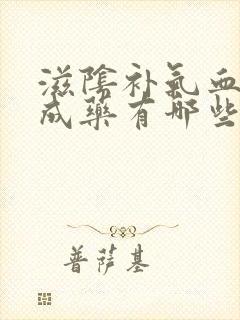 滋陰补氣血
成藥有哪些
普萨基